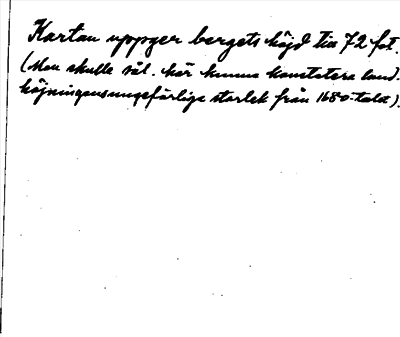 Kartan uppger bergets höjd till 72 fot.
(Man skulle sål. här kunna konstatera land-
höjningens ungefärliga storlek från 1680-talet).